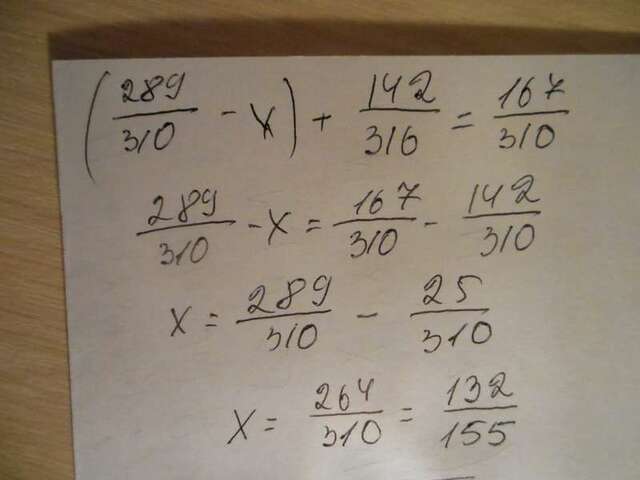 (289/310 - x) + 142/316 = 167/310
289/310 - x = 167/310 - 142/310
x = 289/310 - 25/310
x = 264/310 = 132/155